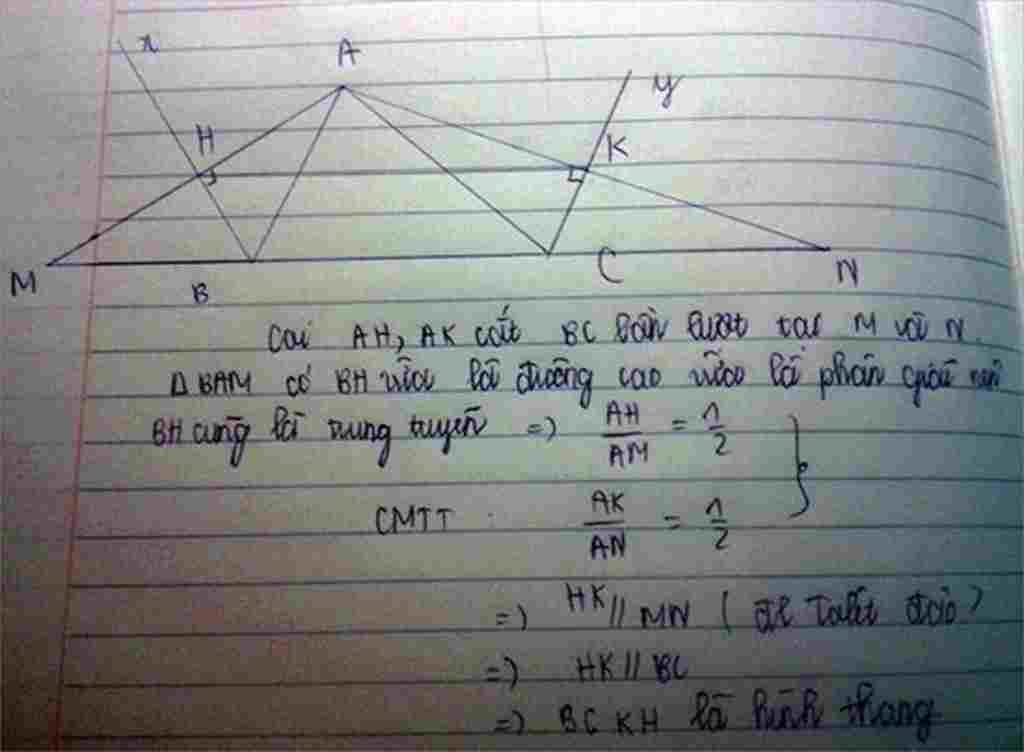 x
A
y
H
K
M
B
C
N
Coi AH, AK cắt BC lần lượt tại M và N.
Δ BAM có BH vừa là đường cao vừa là phân giác nên
BH cũng là trung tuyến => AH/AM = 1/2
CMTT AK/AN = 1/2
=> HK // MN (đl Talét đảo)
=> HK // BC
=> BCKH là hình thang